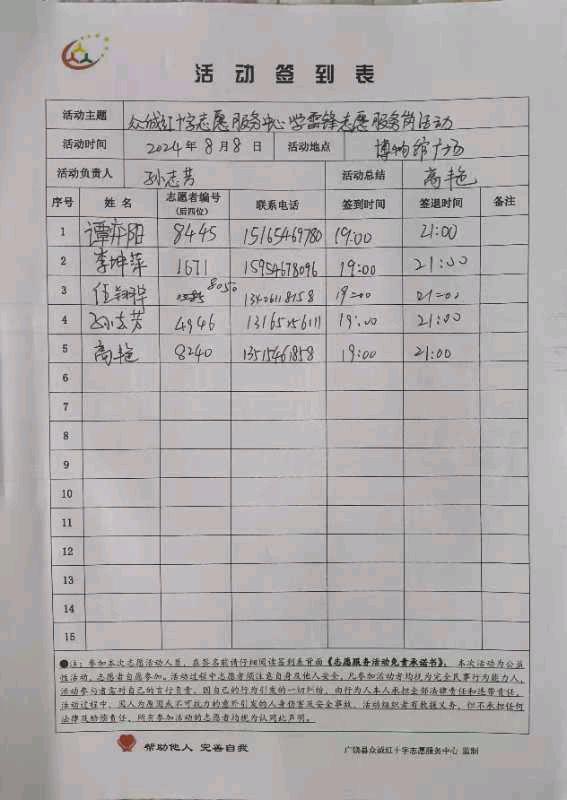 活动签到表
活动主题 众诚红十字志愿服务中心学雷锋志愿服务岗活动
活动时间 2024年8月8日 活动地点 博物馆广场
活动负责人 孙志芳 活动总结 高艳
序号 姓名 志愿者编号(后四位) 联系电话 签到时间 签退时间 备注
1 谭 阳 8445 15165469780 19:00 21:00
2 李坤萍 1671 15954678096 19:00 21:00
3 任翔华 8050 19:00 21:00
4 孙志芳 4946 19:00 21:00
5 高艳 8240 13515461858 19:00 21:00
6
7
8
9
10
11
12
13
14
15
●注:参加本次志愿活动人员,在签名前请仔细阅读签到表背面《志愿服务活动免责承诺书》,本次活动为公益
性活动,志愿者自愿参加。活动过程中志愿者须注意自身及他人安全,凡参加活动者均视为完全民事行为能力人,
活动参与者需对自己的言行负责,因自己的行为引发的一切纠纷,由行为人本人承担全部法律责任和连带责任。
活动过程中,因人为原因或不可抗力的意外引发的人身伤害及安全事故,活动组织者有救援义务,但不承担任何
法律及赔偿责任,所有参加活动的志愿者均视为认同此声明。
帮助他人 完善自我 广饶县众诚红十字志愿服务中心 监制